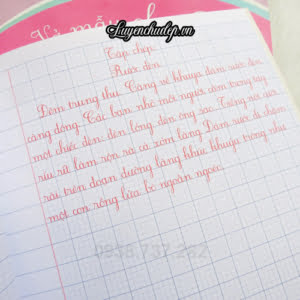 Luyenchudep.vn
Tập chép
Rước đèn
Đêm trung thu. Càng về khuya đám rước đèn
càng đông. Các bạn nhỏ mỗi người cầm trong tay
một chiếc đèn đèn lồng đèn ông sao. Tiếng nói cười
ríu rít làm rộn rã cả xóm làng. Đám rước đi chậm
rãi trên đoạn đường làng khúc khuỷu trông như
một con rồng lửa bò ngoằn ngoèo.
0938.737.282